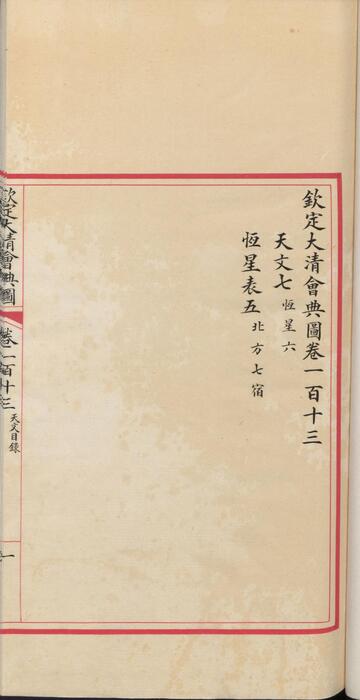 欽定大清會典圖卷一百十三
天文七 恆星六
恆星表五 北方七宿
欽定大清會典圖 卷一百十三 天文目錄 一